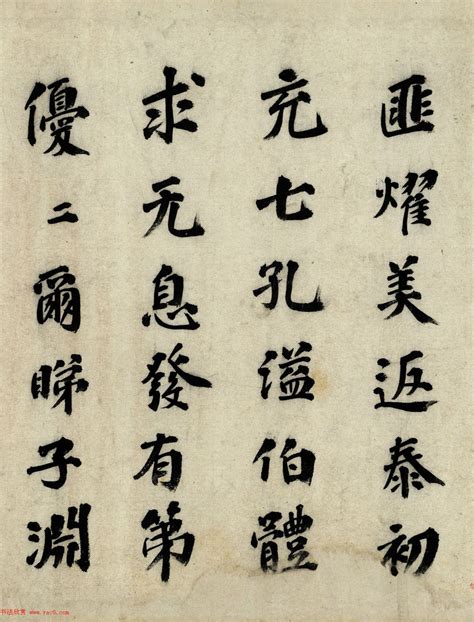 匪燿美返泰初
充七孔謚伯體
求无息發有第
優二爾睇子淵
书法欣赏 www.yac8.com